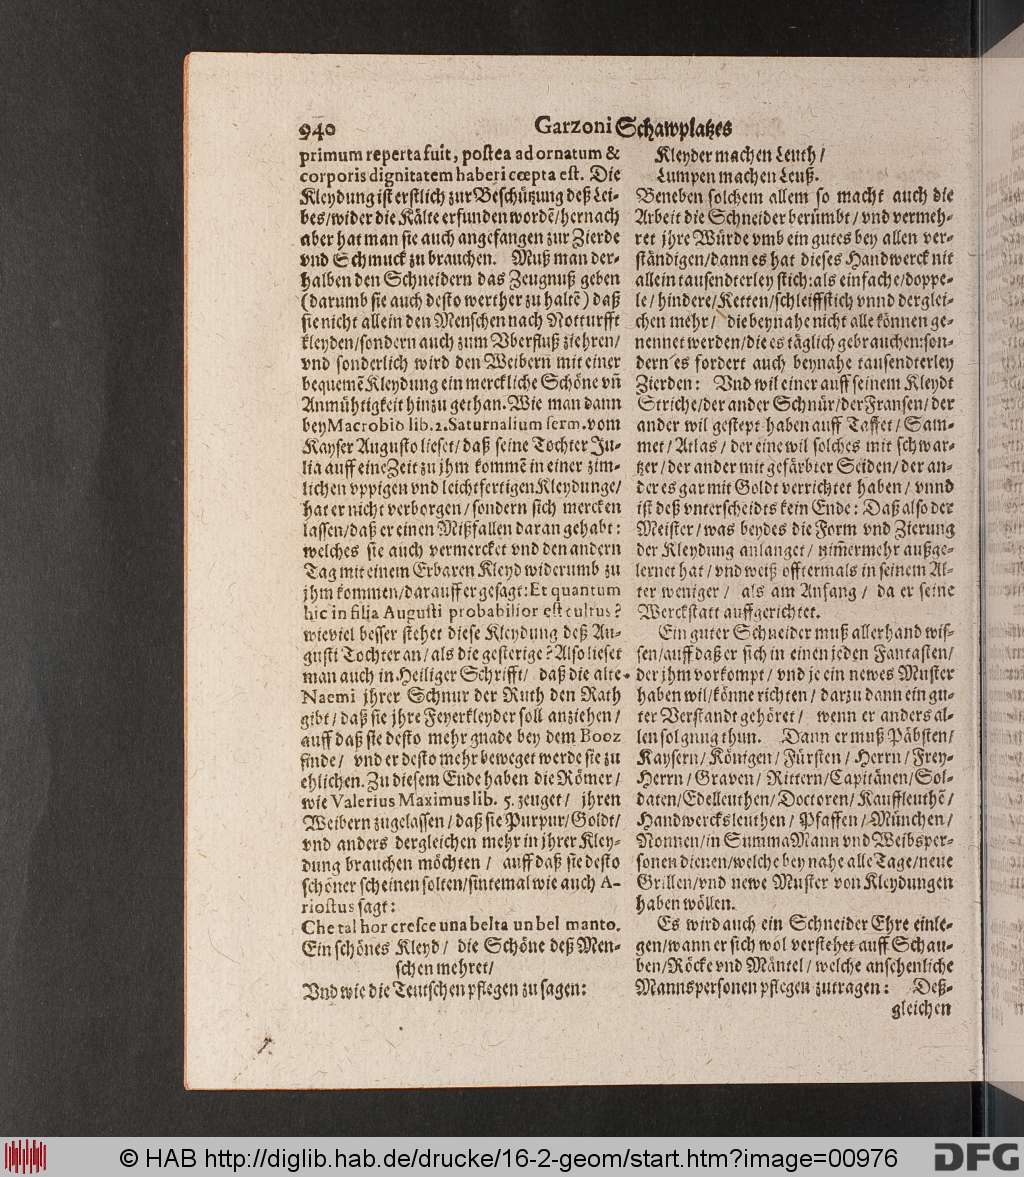 940
Garzoni Schawplatzes
primum reperta fuit, postea ad ornatum &
corporis dignitatem haberi cœpta est. Die
Kleydung ist erstlich zur Beschützung deß Lei-
bes/wider die Kälte erfunden wordē/hernach
aber hat man sie auch angefangen zur Zierde
vnd Schmuck zu brauchen. Muß man der-
halben den Schneidern das Zeugnuß geben
(darumb sie auch desto werther zu haltē) daß
sie nicht allein den Menschen nach Notturfft
kleyden/sondern auch zum Vberfluß ziehren/
vnd sonderlich wird den Weibern mit einer
bequemē Kleydung ein merckliche Schöne vñ
Anmühtigkeit hinzu gethan. Wie man dann
bey Macrobio lib. 2. Saturnalium serm. vom
Kayser Augusto lieset/ daß seine Tochter Ju-
lia auff eine Zeit zu jhm kommē in einer zim-
lichen vppigen vnd leichtfertigen Kleydunge/
hat er nicht verborgen/ sondern sich mercken
lassen/daß er einen Mißfallen daran gehabt:
welches sie auch vermercket vnd den andern
Tag mit einem Erbaren Kleyd widerumb zu
jhm kommen/darauff er gesagt: Et quantum
hic in filia Augusti probabilior est cultus?
wieviel besser stehet diese Kleydung deß Au-
gusti Tochter an/als die gesterige? Also lieset
man auch in Heiliger Schrifft/ daß die alte
Naemi jhrer Schnur der Ruth den Rath
gibt/ daß sie jhre Feyerkleyder soll anziehen/
auff daß sie desto mehr gnade bey dem Booz
finde/ vnd er desto mehr beweget werde sie zu
ehlichen. Zu diesem Ende haben die Römer/
wie Valerius Maximus lib. 5. zeuget/ jhren
Weibern zugelassen/ daß sie Purpur/Goldt/
vnd anders dergleichen mehr in jhrer Kley-
dung brauchen möchten/ auff daß sie desto
schöner scheinen solten/sintemal wie auch A-
riostus sagt:
Che tal hor cresce una belta un bel manto.
Ein schönes Kleyd/ die Schöne deß Men-
schen mehret/
Vnd wie die Teutschen pflegen zu sagen:
Kleyder machen Leuth/
Lumpen machen Leuß.
Beneben solchem allem so macht auch die
Arbeit die Schneider berümbt/ vnd vermeh-
ret jhre Würde vmb ein gutes bey allen ver-
ständigen/dann es hat dieses Handwerck nit
allein tausendterley stich: als einfache/doppe-
le/hindere/Ketten/schleiffstich vnnd derglei-
chen mehr/ die beynahe nicht alle können ge-
nennet werden/die es täglich gebrauchen: son-
dern es fordert auch beynahe tausendterley
Zierden: Vnd wil einer auff seinem Kleydt
Striche/der ander Schnür/der Fransen/ der
ander wil gestept haben auff Taffet/ Sam-
met/Atlas/ der eine wil solches mit schwar-
tzer/der ander mit gefärbter Seiden/der an-
der es gar mit Goldt verrichtet haben/ vnnd
ist deß vnterscheidts kein Ende: Daß also der
Meister/was beydes die Form vnd Zierung
der Kleydung anlanget/ nim̄ermehr außge-
lernet hat/ vnd weiß offtermals in seinem Al-
ter weniger/ als am Anfang/ da er seine
Werckstatt auffgerichtet.
Ein guter Schneider muß allerhand wis-
sen/auff daß er sich in einen jeden Fantasten/
der jhm vorkompt/ vnd je ein newes Muster
haben wil/könne richten/ darzu dann ein gu-
ter Verstandt gehöret/ wenn er anders al-
len sol gnug thun. Dann er muß Päbsten/
Kaysern/Königen/Fürsten/Herrn/Frey-
Herrn/Graven/Rittern/Capitänen/Sol-
daten/Edelleuthen/Doctoren/Kauffleuthē/
Handwercksleuthen/Pfaffen/München/
Nonnen/in Summa Mann vnd Weibsper-
sonen dienen/welche bey nahe alle Tage/neue
Grillen/vnd newe Muster von Kleydungen
haben wöllen.
Es wird auch ein Schneider Ehre einle-
gen/wann er sich wol verstehet auff Schau-
ben/Röcke vnd Mäntel/ welche ansehenliche
Mannspersonen pflegen zutragen: Deß-
gleichen
© HAB http://diglib.hab.de/drucke/16-2-geom/start.htm?image=00976
DFG